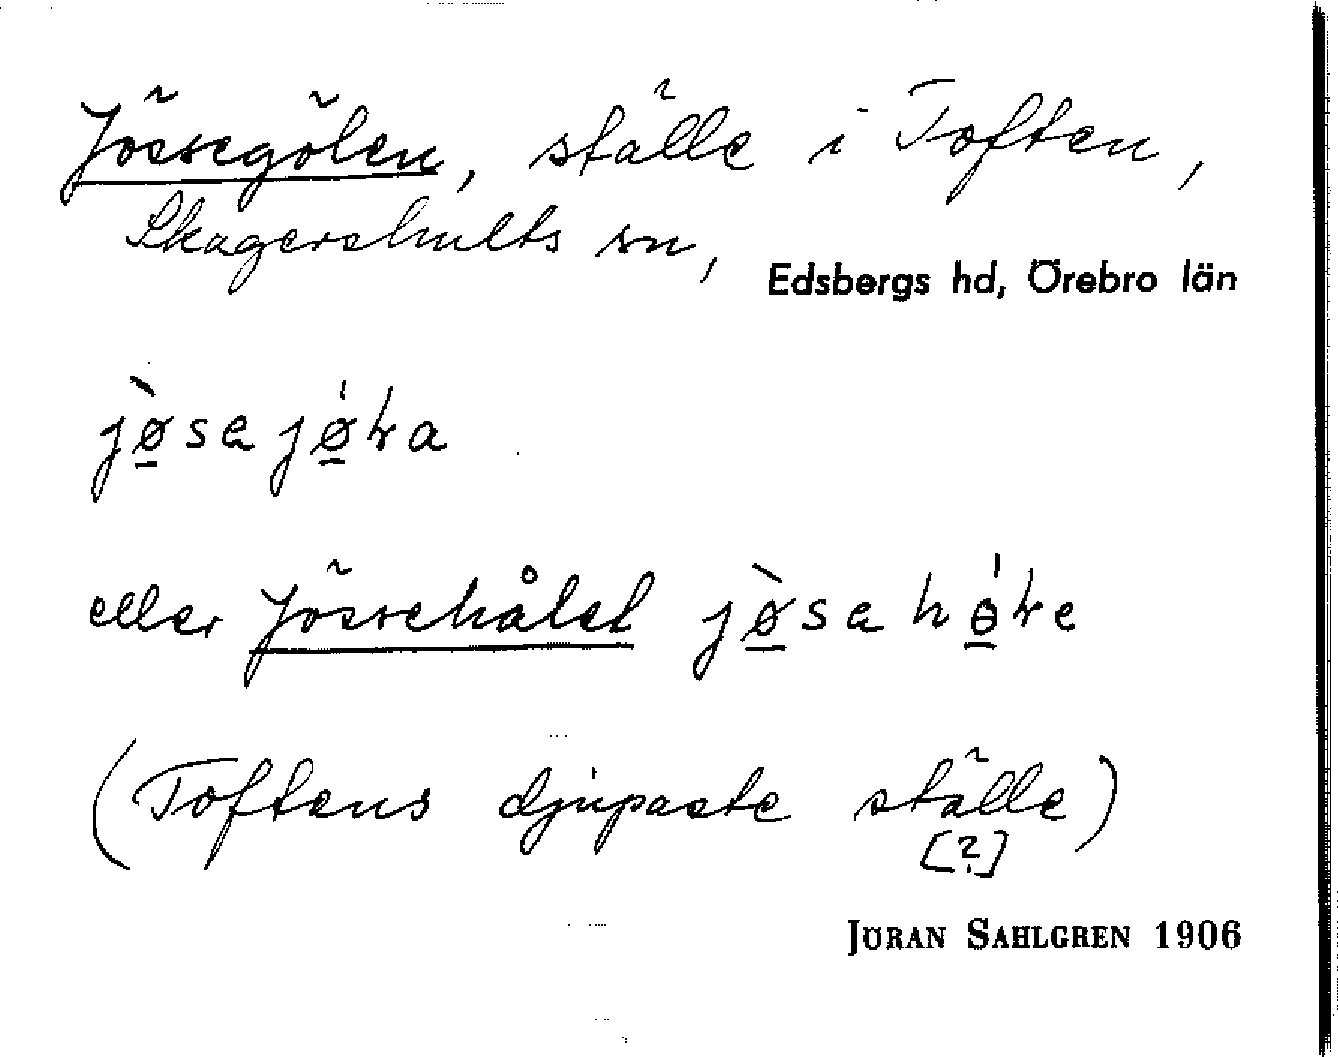 Jössegölen, ställe i Toften,
Skagershults sn,
Edsbergs hd, Örebro län
jø̀sa jǿɫa
eller Jössehålet jø̀sa hɵ́ɫe
(Toftens djupaste ställe)
[?]
JÖRAN SAHLGREN 1906